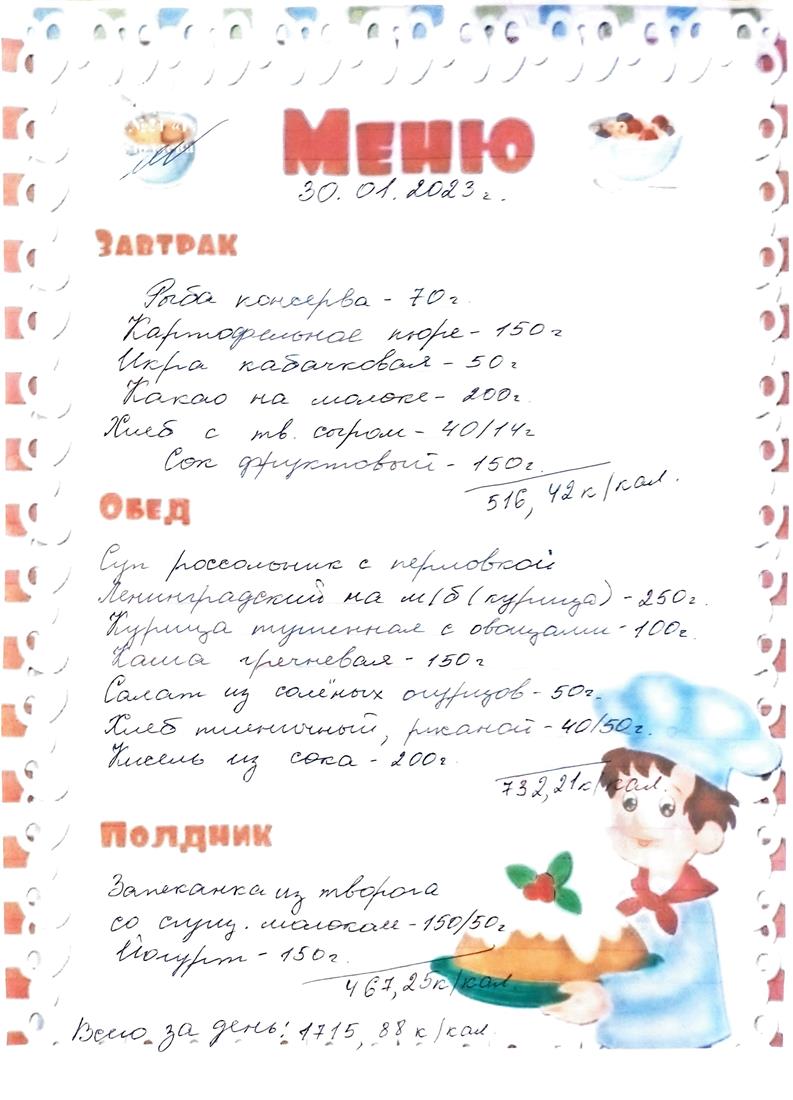 Меню
30.01.2023г.
Завтрак
Рыба консерва - 70г.
Картофельное пюре - 150г
Икра кабачковая - 50г
Какао на молоке - 200г.
Хлеб с тв. сыром - 40/14г
Сок фруктовый - 150г.
516,42к/кал.
Обед
Суп россольник с перловкой
Ленинградский на м/б (курица) - 250г.
Курица тушенная с овощами - 100г.
Каша гречневая - 150г
Салат из солёных огурцов - 50г.
Хлеб пшеничный, ржаной - 40/50г.
Кисель из сока - 200г.
732,21к/кал.
Полдник
Запеканка из творога
со сгущ. молоком - 150/50г
Йогурт - 150г.
467,25к/кал
Всего за день: 1715,88к/кал.